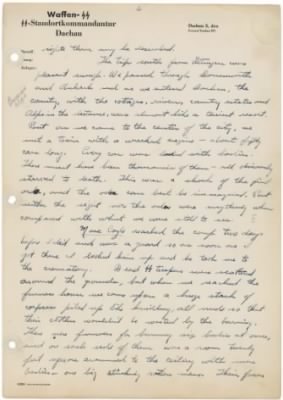 6
Waffen-SS
SS-Standortkommandantur
Dachau
Dachau 3, den
rights there may be resembled.
The trip south from
pleasant enough. We passed through
and and as we entered Bavaria, the
country, with the cottages, rivers, country estates and
Alps in the distance, was almost like a tourist resort.
But as we came to the center of the city, we
met a train with a wrecked engine – about fifty
cars long. Every car was loaded with bodies.
There must have been thousands of them – all obviously
starved to death. This was a shock of the first
order, and the odor can best be imagined. But
neither the sight nor the odor were anything when
compared with what we were still to see.
Marc Coyle reached the camp two days
before I did and was a guard so as soon as I
got there I looked him up and he took me to
the crematory. Dead SS troopers were scattered
around the grounds, but when we reached the
furnace house we came upon a huge stack of
corpses piled up like kindling, all nude so that
their clothes wouldn't be wasted by the burning.
There were furnaces for burning six bodies at once,
and on each side of them was a room twenty
feet square crammed to the ceiling with more
bodies – one big stinking rotten mess. Their faces